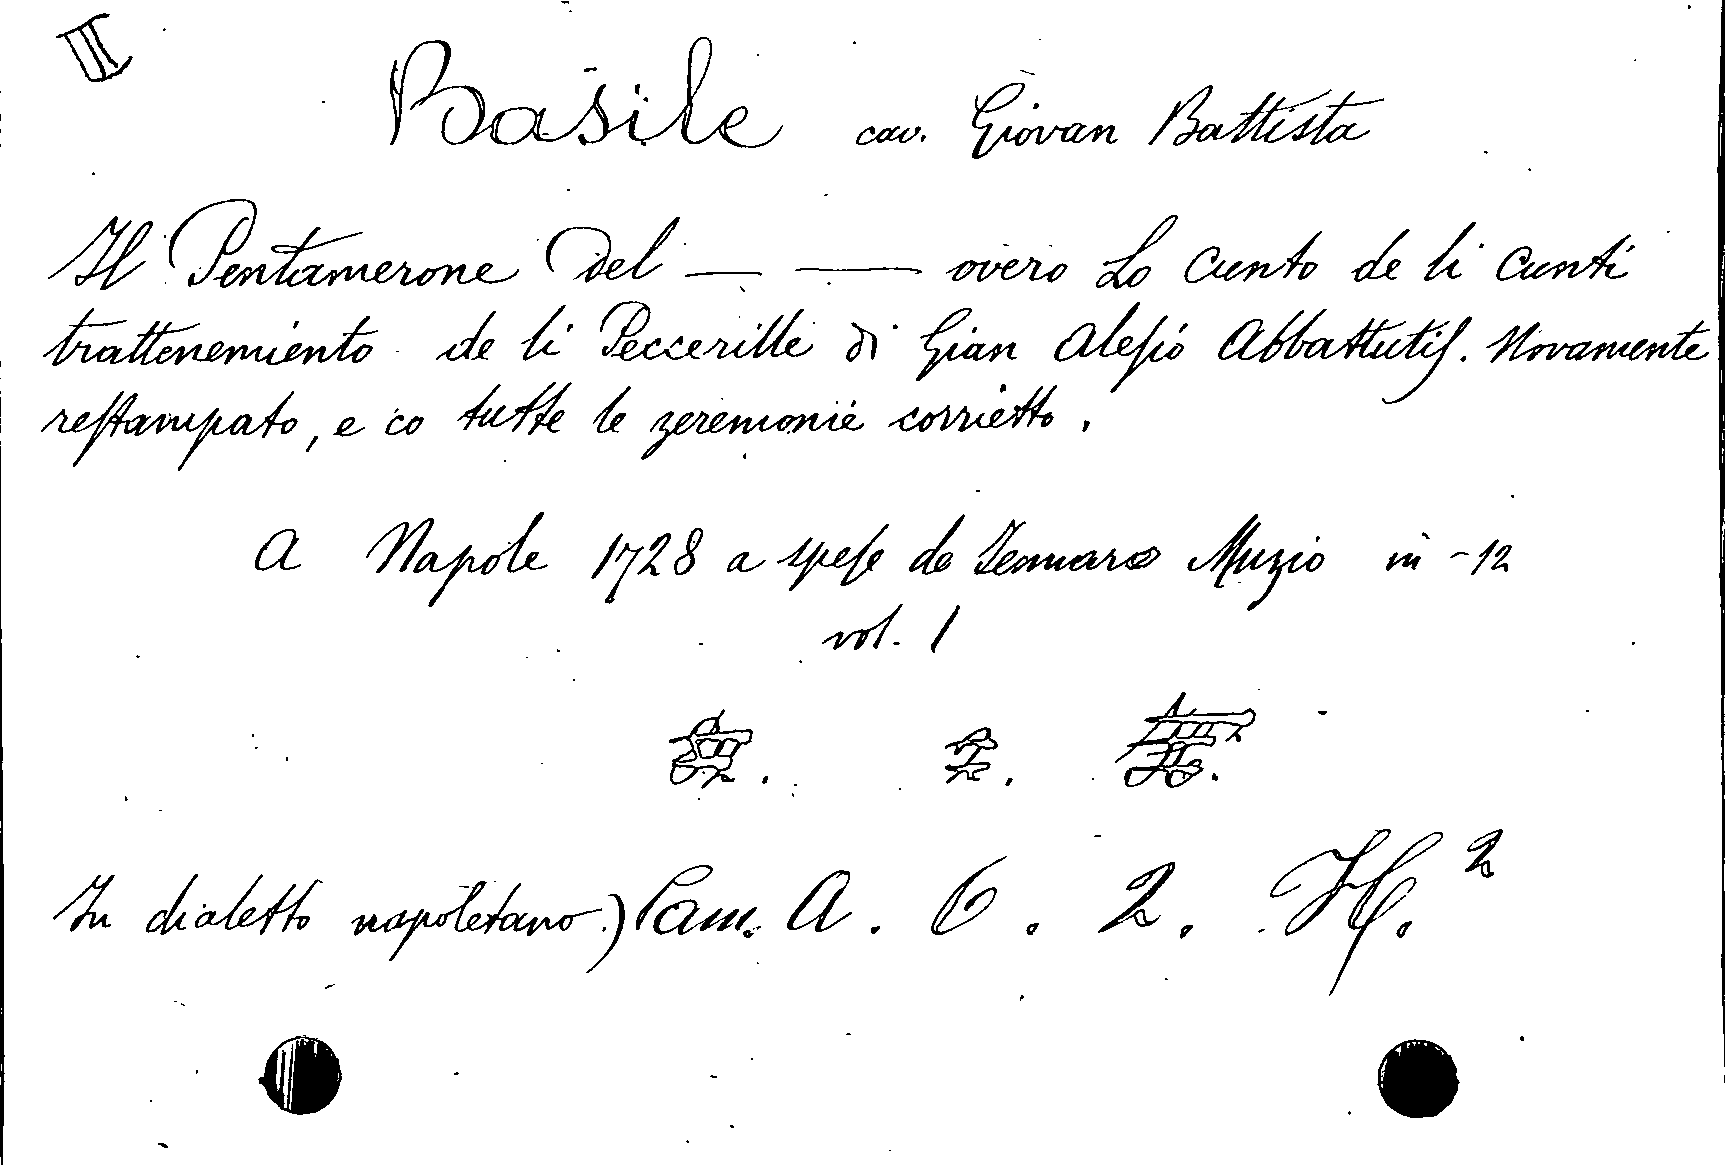 II
Basile cav. Giovan Battista
Il Pentamerone Del — — overo Lo Cunto de li Cunti
trattenemiento de li Peccerille di Gian Alesio Abbattutis. Novamente
restampato, e co tutte le zeremonie corrietto.
A Napole 1728 a spese de Jennaro Muzio in-12
vol. 1
In dialetto napoletano.) Cam. A. 6. 2. H.²